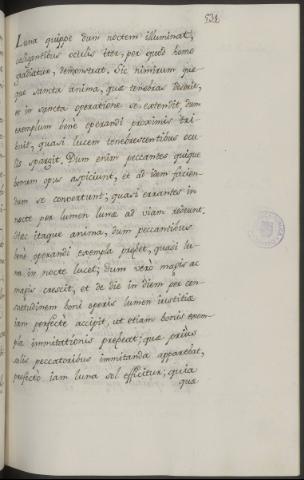 531.
Luna quippe dum noctem illuminat,
caligantibus oculis iter, per quod homo
gradiatur, demonstrat. Sic nimirum quæ-
que sancta anima, quæ tenebras deseruit,
et in sancta operatione se extendit, dum
exemplum bene operandi proximis tri-
buit, quasi lucem tenebrescentibus ocu-
lis spargit. Dum enim peccantes quique
bonum opus aspiciunt, et ad idem facien-
dum se convertunt; quasi errantes in
nocte per lumen lunæ ad viam redeunt.
Hæc itaque anima, dum peccantibus
bene operandi exempla præbet, quasi lu-
na in nocte lucet; dum verò magis ac
magis crescit, et de die in diem per con-
suetudinem boni operis lumen iustitiæ
iam perfectè accipit, ut etiam bonis exem-
pla immitationis præbeat; quæ priùs
aliis peccatoribus immitanda apparebat,
profectò iam luna sol efficitur; quia
quæ